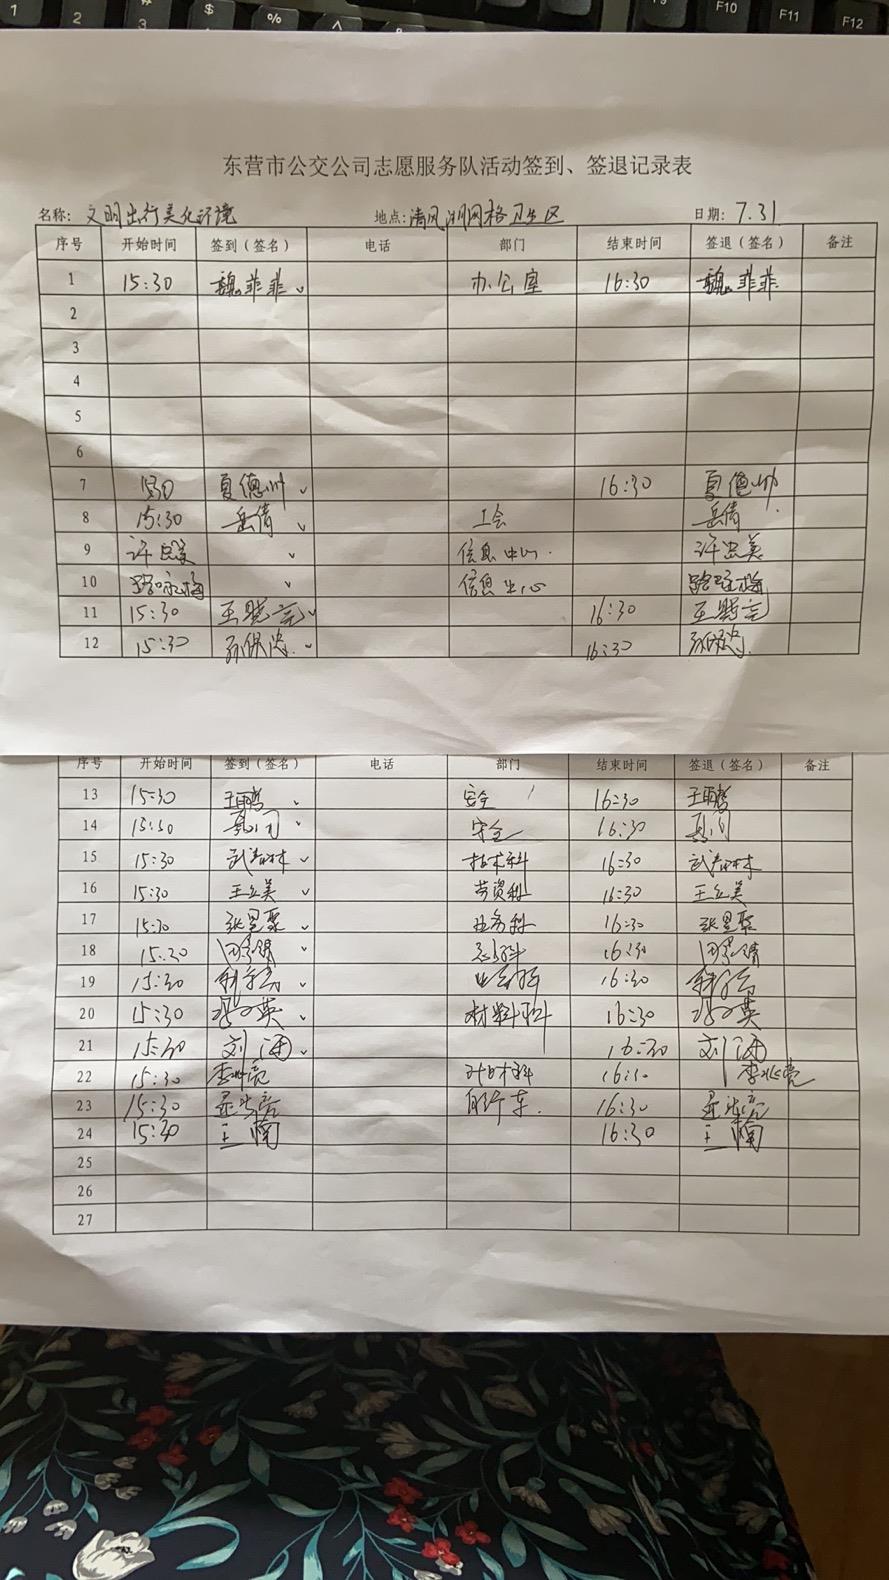 1 2 3 # $ % ^ & F10 F11 F12
东营市公交公司志愿服务队活动签到、签退记录表
名称: 文明出行美化环境 地点: 清风湖网格卫生区 日期: 7.31
序号 开始时间 签到(签名) 电话 部门 结束时间 签退(签名) 备注
1 15:30 魏菲菲 办公室 16:30 魏菲菲
2
3
4
5
6
7 夏德帅 16:30 夏德帅
8 15:30 岳倩 工会 岳倩
9 许忠美 信息中心 许忠美
10 路咏梅 信息中心 路咏梅
11 15:30 王晓亮 16:30 王晓亮
12 15:30 孙保忠 16:30 孙保忠
序号 开始时间 签到(签名) 电话 部门 结束时间 签退(签名) 备注
13 15:30 安全 16:30
14 安全 16:30
15 15:30 技术科 16:30
16 15:30 王立美 劳资科 16:30 王立美
17 15:30 业务科 16:30
18 15:30 16:30
19 15:30 16:30
20 15:30 材料科 16:30
21 15:30 刘 16:30 刘
22 15:30 李兆亮 16:30 李兆亮
23 15:30 自行车 16:30
24 15:30 王楠 16:30 王楠
25
26
27